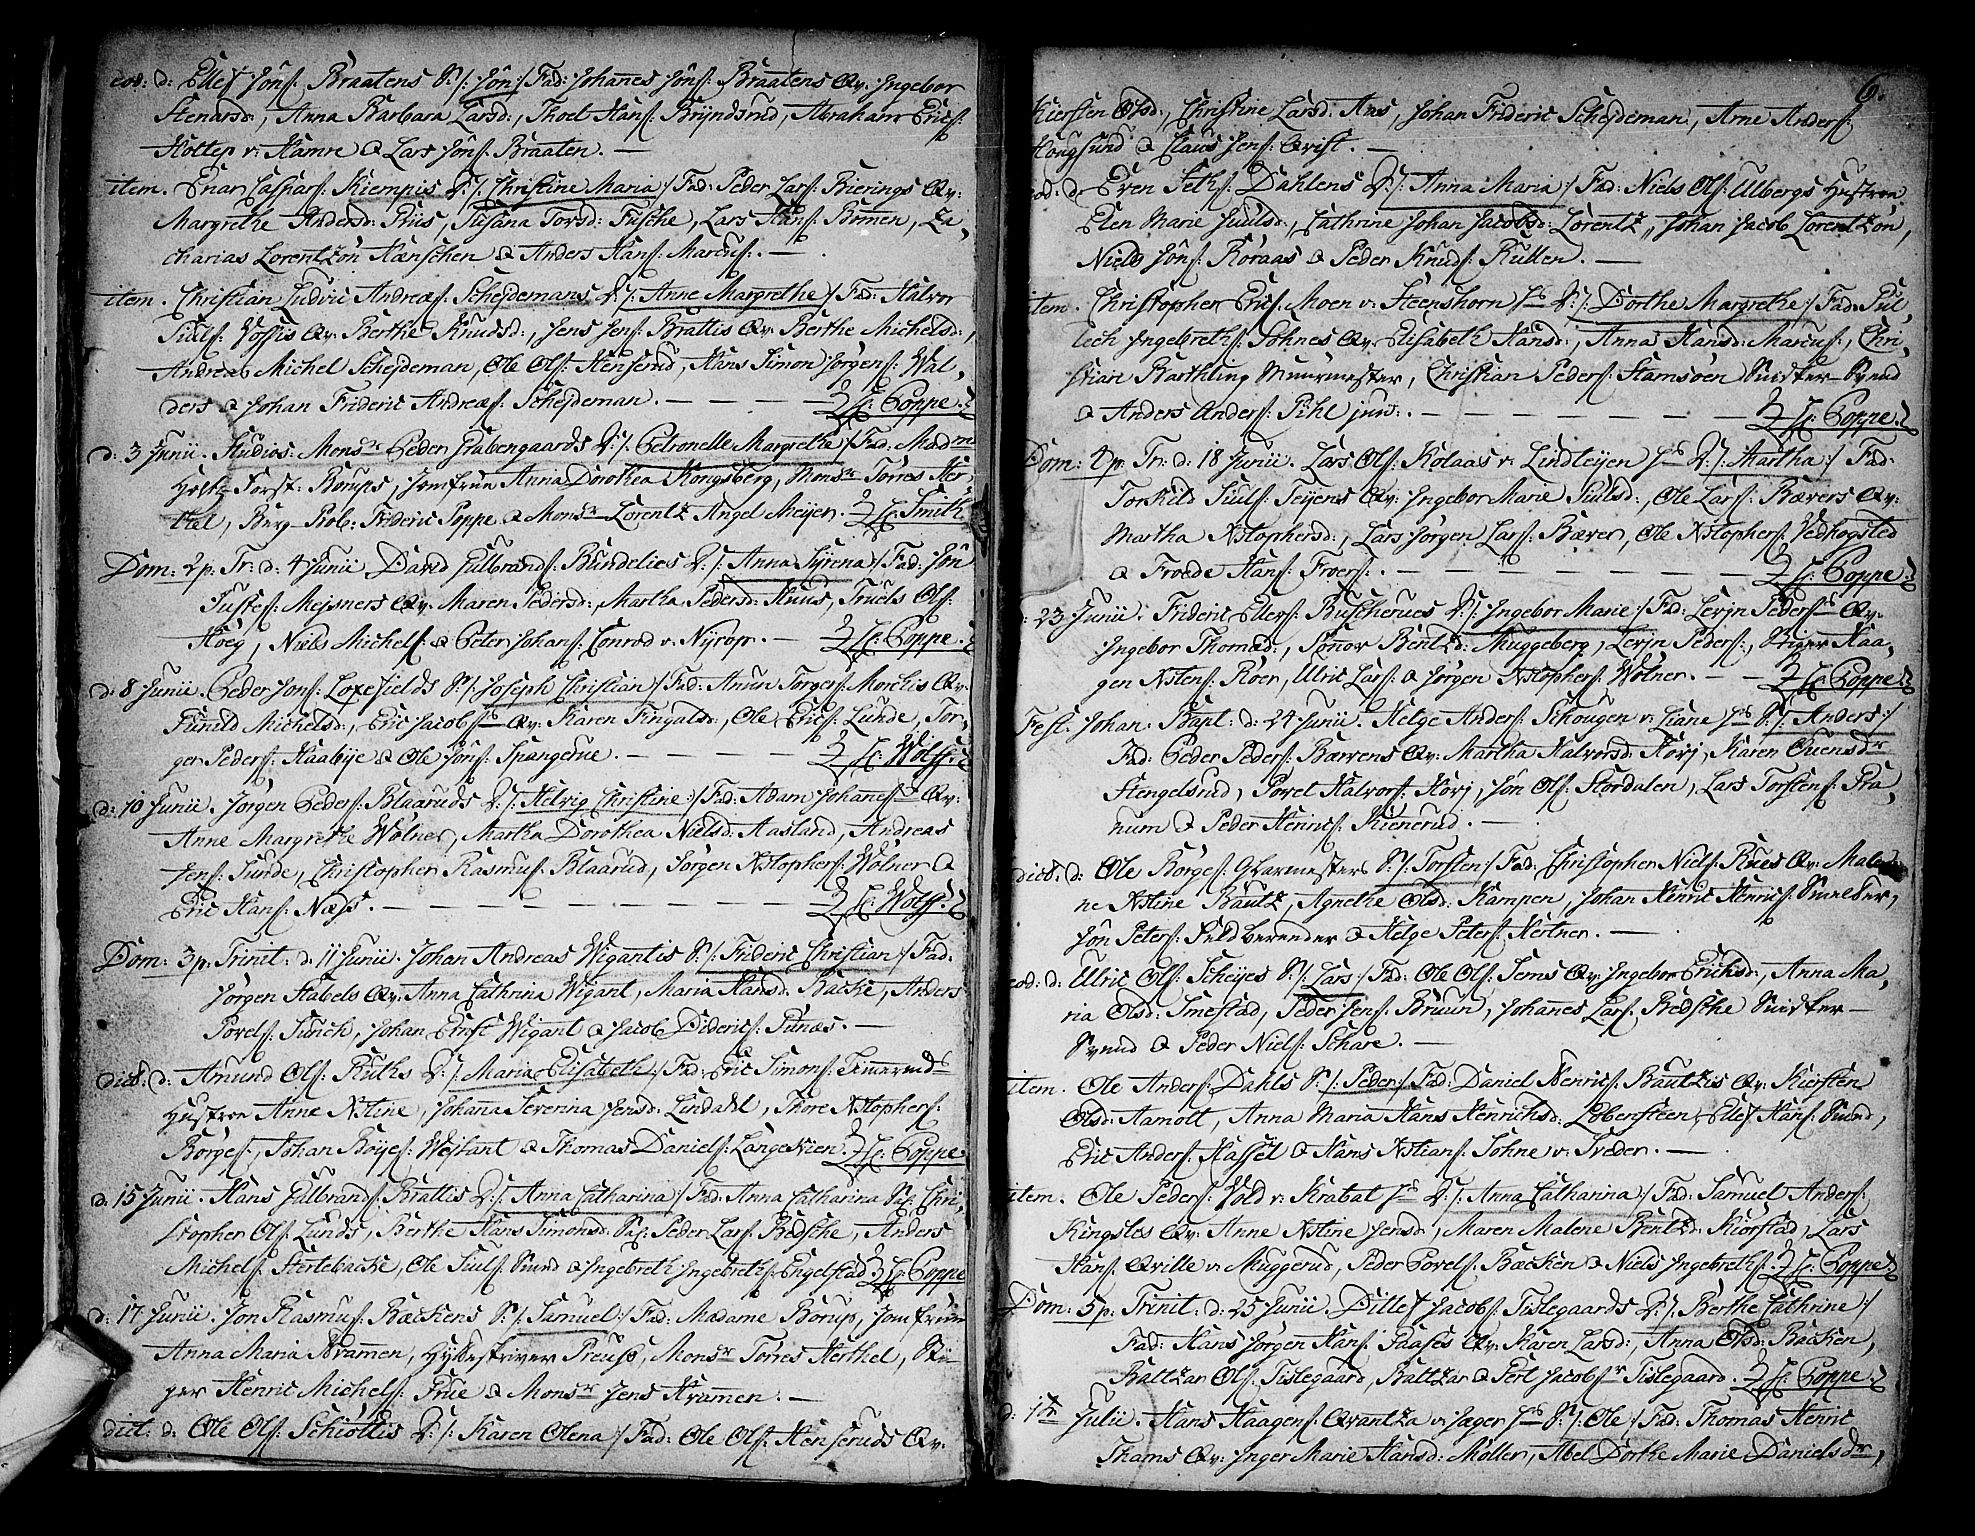 eod: d: Ellef Jöns: Braatens S:/: Jön :/ Fad: Johanes Jöns: Braatens Qv: Ingebor
Stenarsd:, Anna Barbara Larsd:, Thoel Hans: Bryndsrud, Abraham Erics:
Hottep v: Hamre & Lars Jöns: Braaten. —
item. Enar Caspars: Kiempis D:/: Christine Maria :/ Fad: Peder Lars: Bierings Qv:
Margrethe Andersd: Priis, Susana Torsd: Fusche, Lars Hans: Bömen, Za,
charias Lorentzön Hænschen & Anders Hans: Marcus:. —
item. Christian Ludvic Andreæs: Schejdemans D:/: Anne Margrethe :/ Fad: Halvor
Siuls: Vossis Qv: Berthe Knudsd:, Jens Jens: Brattis Qv: Berthe Michelsd:,
Andreas Michel Schejdeman, Ole Ols: Henserud, Hans Simon Jörgens: Wal,
ders & Johan Frideric Andreæs: Schejdeman. — H: Poppe.
d: 3 Junii. Studios: Monsr Peder Grabengaards D:/: Petronelle Margrethe :/ Fad: Madme
Forst: Borups, Jomfrue Anna Dorothea Kongsberg, Monsr Torres Her,
thel, Berg Prob: Frideric Poppe & Monsr Lorentz Angel Meyer. H: Smith
Dom: 2 p: Tr: d: 4 Junii David Gulbrands: Bundelies D:/: Anna Syrena :/ Fad: Jön
Justes: Mejsners Qv: Maren Pedersd:, Martha Pedersd: Huus, Truels Ols:
Hoeg, Niels Michels: & Peter Johans: Conrad v: Nyrop. — H: Poppe.
d: 8 Junii. Peder Jons: Loxefields S:/: Joseph Christian :/ Fad: Anun Torgers: Morelis Qv:
Gunild Michelsd:, Eric Jacobs: Qv: Karen Fingalsd:, Ole Erics: Lunde, Tor,
ger Peders: Haabije & Ole Jöns: Spangerue. — H: Wolff.
d: 10 Junii. Jörgen Peders: Blaaruds D:/: Helvig Christine :/ Fad: Adam Johanes: Qv:
Anne Margrethe Wölner, Martha Dorothea Nielsd: Aasland, Andreas
Jens: Sunde, Christopher Rasmus: Blaarud, Jörgen Xstophers: Wölner &
Eric Hans: Næss. — H: Wolff.
Dom: 3 p: Trinit: d: 11 Junii. Johan Andreas Wigantis S:/: Frideric Christian :/ Fad:
Jörgen Stabels Qv: Anna Cathrina Wigant, Maria Hansd: Backe, Anders
Povels: Funch, Johan Ernst Wigant & Jacob Diderics: Funæs. —
dict: d: Amund Ols: Ruths D:/: Maria Elisabeth :/ Fad: Eric Simons: Simerends
Hustroe Anne Xstine, Johana Severina Jensd: Lindahl, Thore Xstophers:
Börges:, Johan Böyes: Wejtant & Thomas Daniels: Langeskien. H: Poppe
d: 15 Junii. Hans Gulbrands: Brattis D:/: Anna Catharina :/ Fad: Anna Catharina Sig: Chri,
stopher Ols: Lunds, Berthe Hans Simonsd: Sig: Peder Lars: Bedsche, Anders
Michels: Stertebacke, Ole Siuls: Svend & Ingebreth Ingebreths: Engelstad. H: Poppe
d: 17 Junii. Jon Rasmus: Bæckens S:/: Samuel :/ Fad: Madame Borup, Jomfrue
Anna Maria Kramer, Hyttestriver Preuss, Monsr Torres Herthel, Sti,
ger Henric Michels: Frue & Monsr Jens Kramer. —
dict: d: Ole Ols: Schiöttis D:/: Karen Olena :/ Fad: Ole Ols: Henseruds Qv:
6.
Kiersten Olsd:, Christine Larsd: Aas, Johan Frideric Schejdeman, Arne Anders:
Hougsund & Claus Jens: Qvist —
eod: d: Even Seths: Dahlens D:/: Anna Maria :/ Fad: Niels Ols: Ulbergs Hustroe
Elen Marie Juulsd:, Cathrine Johan Jacobsd: Lorentz, Johan Jacob Lorentzön,
Niels Jöns: Roraas & Peder Knuds: Rullen. —
item. Christopher Erics: Moen v: Steenshorn Hs D:/: Dorthe Margrethe :/ Fad: Pul,
lech Ingebreths: Söhnes Qv: Elisabeth Hansd:, Anna Hansd: Marcus:, Chri,
stian Barthling Muurmester, Christian Peders: Hamsöen Snidker Svend
& Anders Anders: Pihl jun:. — H: Poppe.
Dom: 4 p: Tr: d: 18 Junii. Lars Ols: Kolaas v: Lindtejen Hs D:/: Martha :/ Fad:
Torkild Siuls: Tejens Qv: Ingebor Marie Siulsd:, Ole Lars: Bævers Qv:
Martha Xstophersd:, Lars Jörgen Lars: Bæver, Ole Xstophers: Vedhogsted
& Froede Hans: Froers:. — H: Poppe.
23 Junii. Frideric Ellefs: Buscherues D:/: Ingebor Marie :/ Fad: Lerjn Peders: Qv:
Ingebor Thomasd:, Sönov Bentzd: Muggeberg, Lerjn Peders:, Birger Haa,
gen Xstens: Roer, Ulric Lars: & Jörgen Xstophers: Wölner. — H: Poppe.
Fest: Johan: Bapt: d: 24 Junii. Helge Anders: Schougen v: Liane Hs S:/: Anders :/
Fad: Peder Peders: Bærvens Qv: Martha Halvorsd: Körj, Karen Evensdr
Stengelsrud, Povel Halvors: Körj, Jön Ols: Stordalen, Lars Torstens: Gra,
num & Peder Henrics: Kienerud. —
dict: d: Ole Börges: Glarmesters S:/: Torsten :/ Fad: Christopher Niels: Rues Qv: Male,
ne Xstine Bautz, Agnethe Olsd: Kampen, Johan Henric Henrics: Smelder,
Jön Peters: Guldberender & Helge Peters: Hertner. —
eod: d: Ulric Ols: Scheyes S:/: Lars :/ Fad: Ole Ols: Sems Qv: Ingebor Ericksd:, Anna Ma,
ria Olsd: Smestad, Peder Jens: Bruun, Johanes Lars: Bedsche Snidker —
Svend & Peder Niels: Schare. —
item. Ole Anders: Dahls S:/: Peder :/ Fad: Daniel Henrics: Bautzis Qv: Kiersten
Olsd: Aamolt, Anna Maria Hans Henrichsd: Löbensteen, Ellef Hans: Svend,
Eric Anders: Hassel & Hans Xstians: Söhne v: Sreder. —
item. Ole Peders: Vold v: Krabat Hs D:/: Anna Catharina :/ Fad: Samuel Anders:
Kingstes Qv: Anne Xstine Jensd:, Maren Malene Bentzd: Kiörstad, Lars
Hans: Qville v: Muggerud, Peder Povels: Bæcken & Niels Ingebreths:. H: Poppe
Dom: 5 p: Trinit: d: 25 Junii. Ditlef Jacobs: Tislegaards D:/: Berthe Cathrine :/
Fad: Hans Jörgen Hans: Paases Qv: Karen Larsd:, Anna Olsd: Bæcken,
Baltzar Ols: Tislegaard, Baltzar & Pert Jacobs: Tislegaard. H: Poppe.
d: 1te Julii. Hans Haagens: Qvantza v: Jæger Hs S:/: Ole :/ Fad: Thomas Henric
Thams Qv: Inger Marie Hansd: Möller, Abel Dorthe Marie Danielsdr,